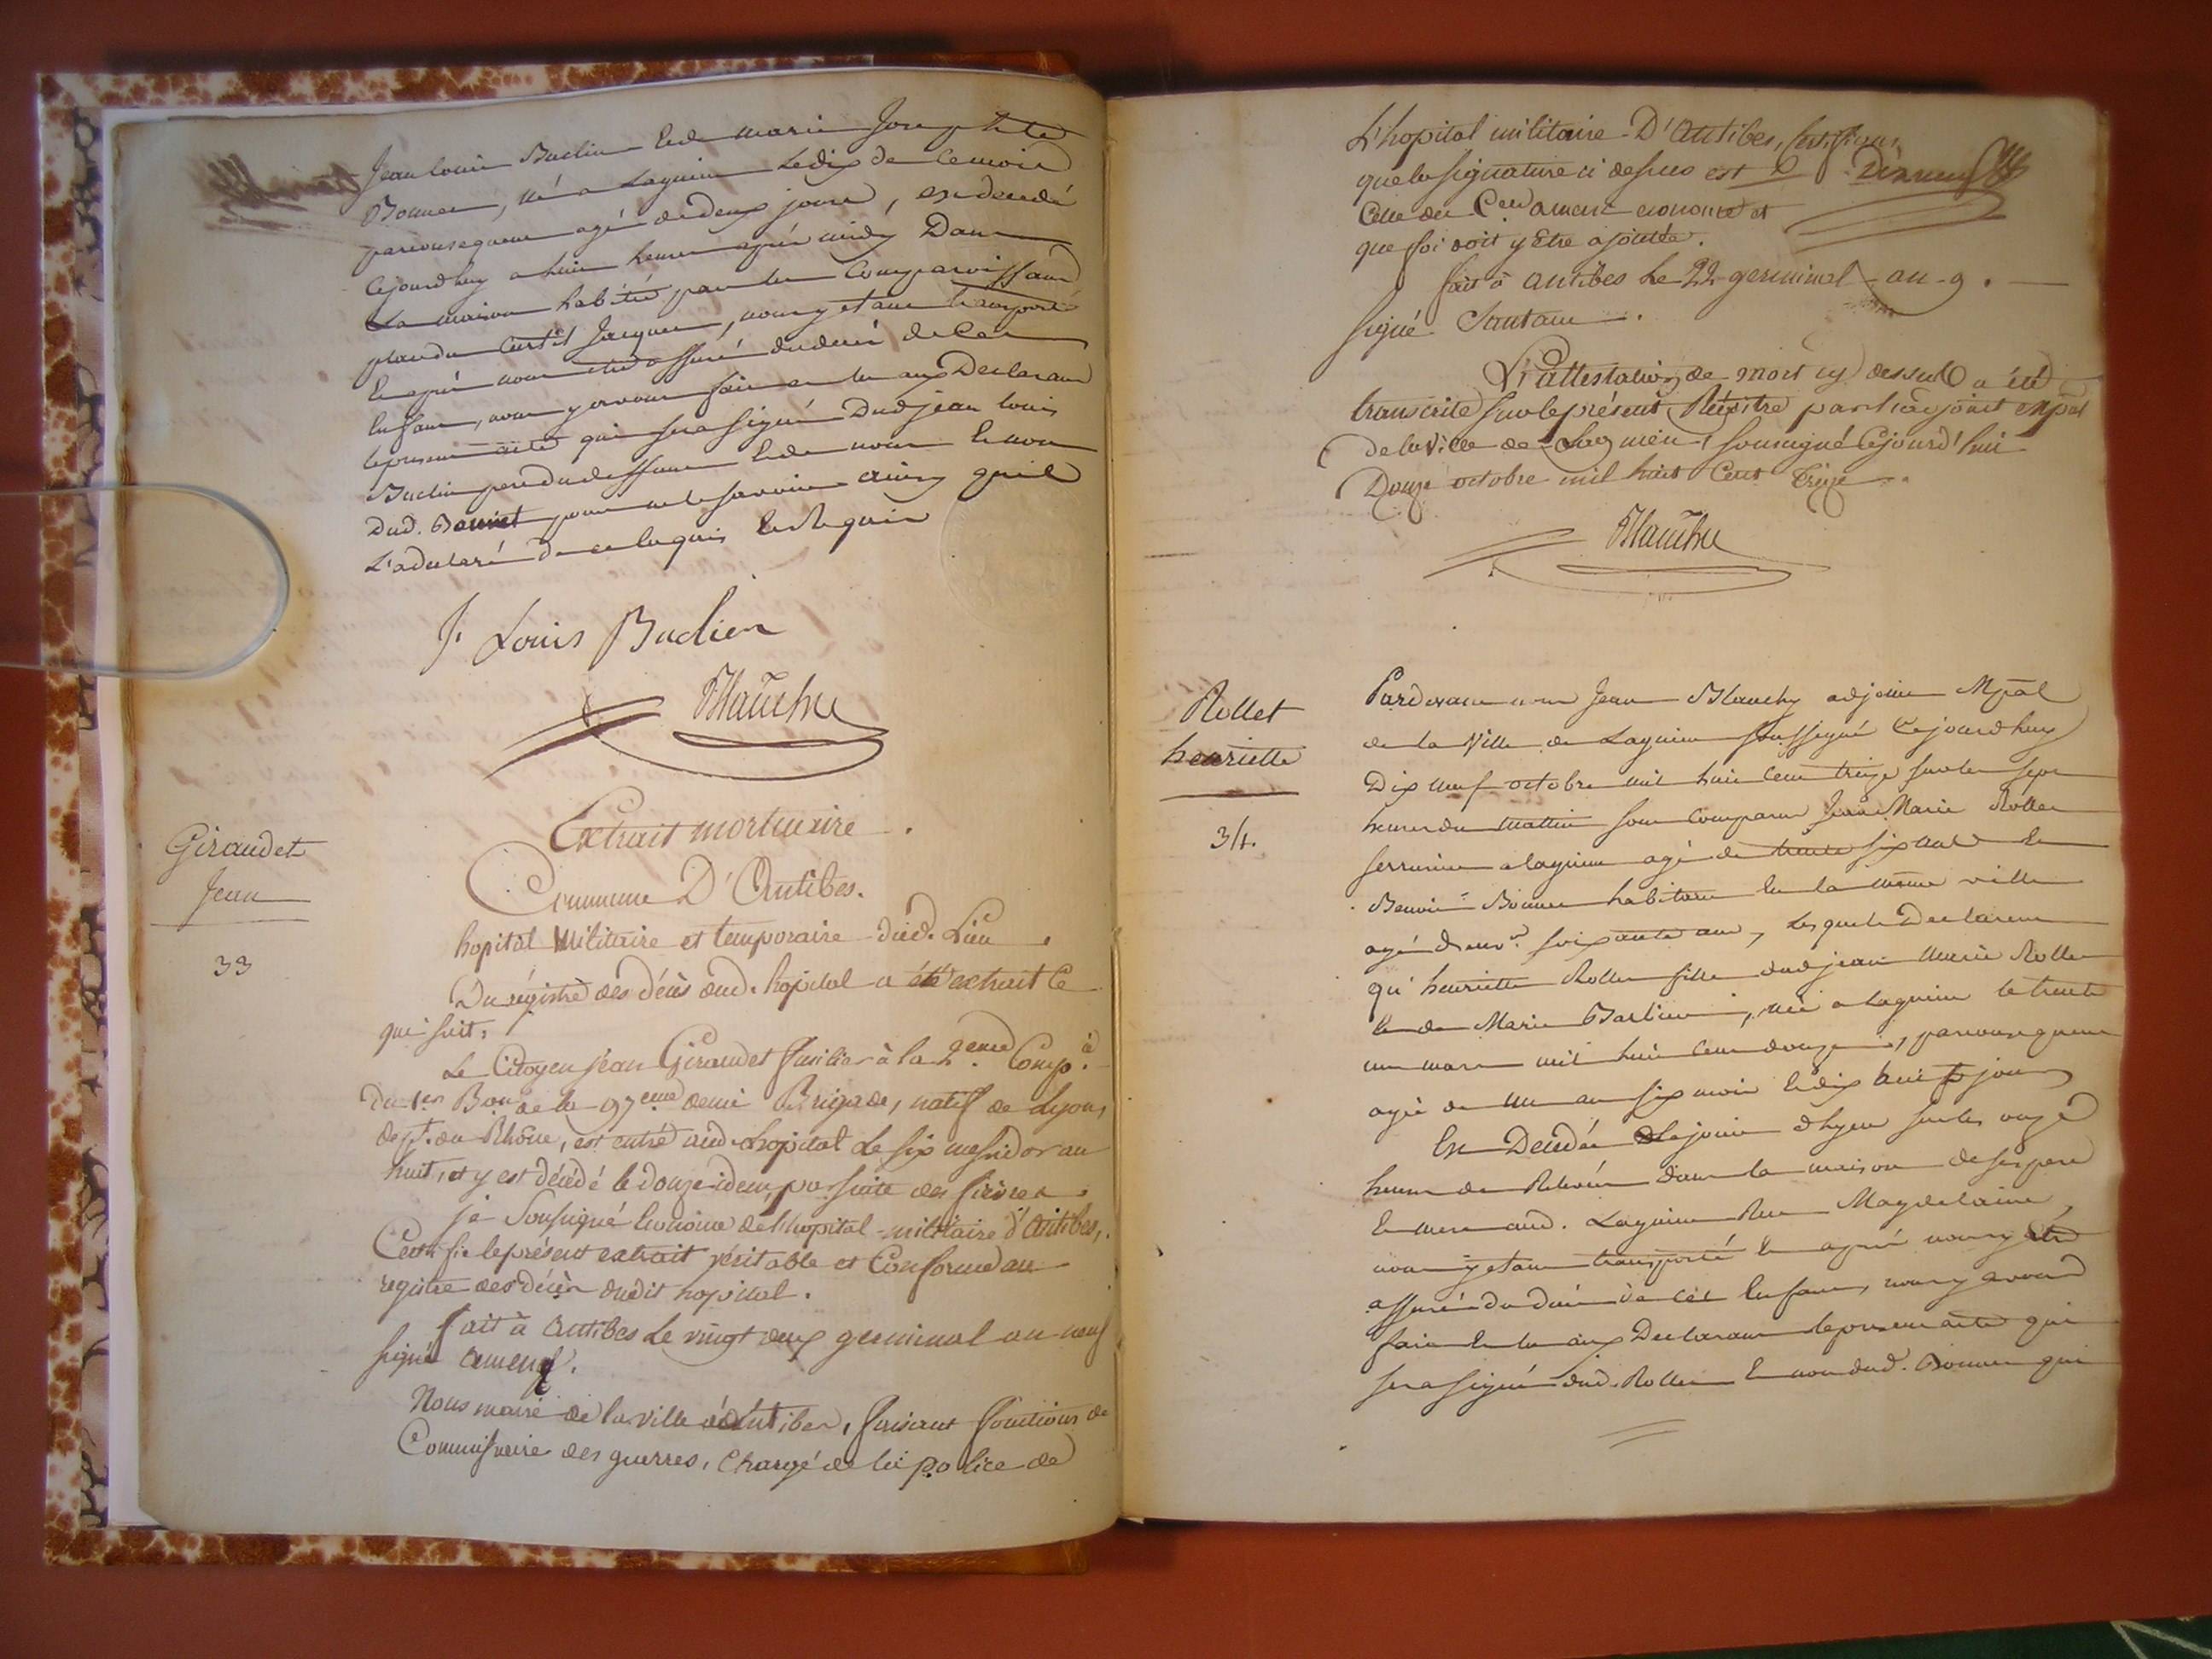 Jean louis Buclin et de marie Josephte
Bonnet, né a Lagnieu le dix de ce mois
par consequent agé de deux jours, est decedé
cejourdhuy a huit heures apres midy Dans
La maison habitée par les comparoissans
place du Curtil Jacques, nous y etant transporté
et après nous etre assuré du deces de cet
enfant, nous y avons fait et lu aux Declarans
le present acte qui sera signé Dud jean louis
Buclin pere du deffunt et de nous et non
Dud. Bonnet pour ne le savoir ainsy qu'il
L'a declaré de ce enquis et requis
J. Louis Buclien
Blanchy
Giraudet
Jean
33
Extrait mortuaire.
Commune D'Antibes.
hopital Militaire et temporaire dud. Lieu.
Du régistre des décès dud. hopital a été extrait ce
qui suit,
Le Citoyen jean Giraudet fusilier à la 2.eme Comp.ie
du 1.er B.on de la 97.eme demi Brigade, natif de Lyon,
dep.t du Rhône, est entré aud. hopital Le six messidor an
huit, et y est décédé le douze idem, par suite des fièvres.
je Soussigné Econome de l'hopital militaire d'Antibes,
Certifie le présent extrait véritable et Conforme au
registre des décès dudit hopital.
fait à Antibes Le vingt deux germinal an neuf
signé amenc.
Nous maire de la ville d'Antibes, faisant fonctions de
Commissaire des guerres, Chargé de la police de
L'hopital militaire D'Antibes, Certifions
que la signature ci dessus est
Celle du C.en amenc econome et
que foi doit y Etre ajoutée.
fait à Antibes Le 22 germinal an 9.
signé
L'attestation de mort cy dessus a été
transcrite sur le présent Régitre par l'adjoint Mpal
de la Ville de Lagnieu, soussigné Cejourd'hui
Douze octobre mil huit Cent treize.
Blanchy
Rollet
henriette
34.
Pardevant nous Jean Blanchy adjoint Mpal
de la Ville de Lagnieu soussigné cejourdhuy
Dix neuf octobre mil huit cent treize sur les sept
heures du mattin sont comparus Jean Marie Rollet
serrurier a lagnieu agé de trente six ans et
Benoit Bonnet habitant en la même ville
agé d'env.on soixante ans, Lesquels Declarent
qu'henriette Rollet fille dud jean marie Rollet
et de Marie née a lagnieu le trente
un mars mil huit cent douze, par consequent
agée de un an six mois et dix huit jours
Est Decedée Le jour d'hyer sur les onze
heures de Relevée dans la maison de ses pere
et mere aud. Lagnieu Rue Magdelaine,
nous y etant transporté et après nous y être
assuré du deces de cet Enfant, nous y avons
fait et lu aux Declarans le present acte qui
sera signé dud. Rollet et non dud. Bonnet qui